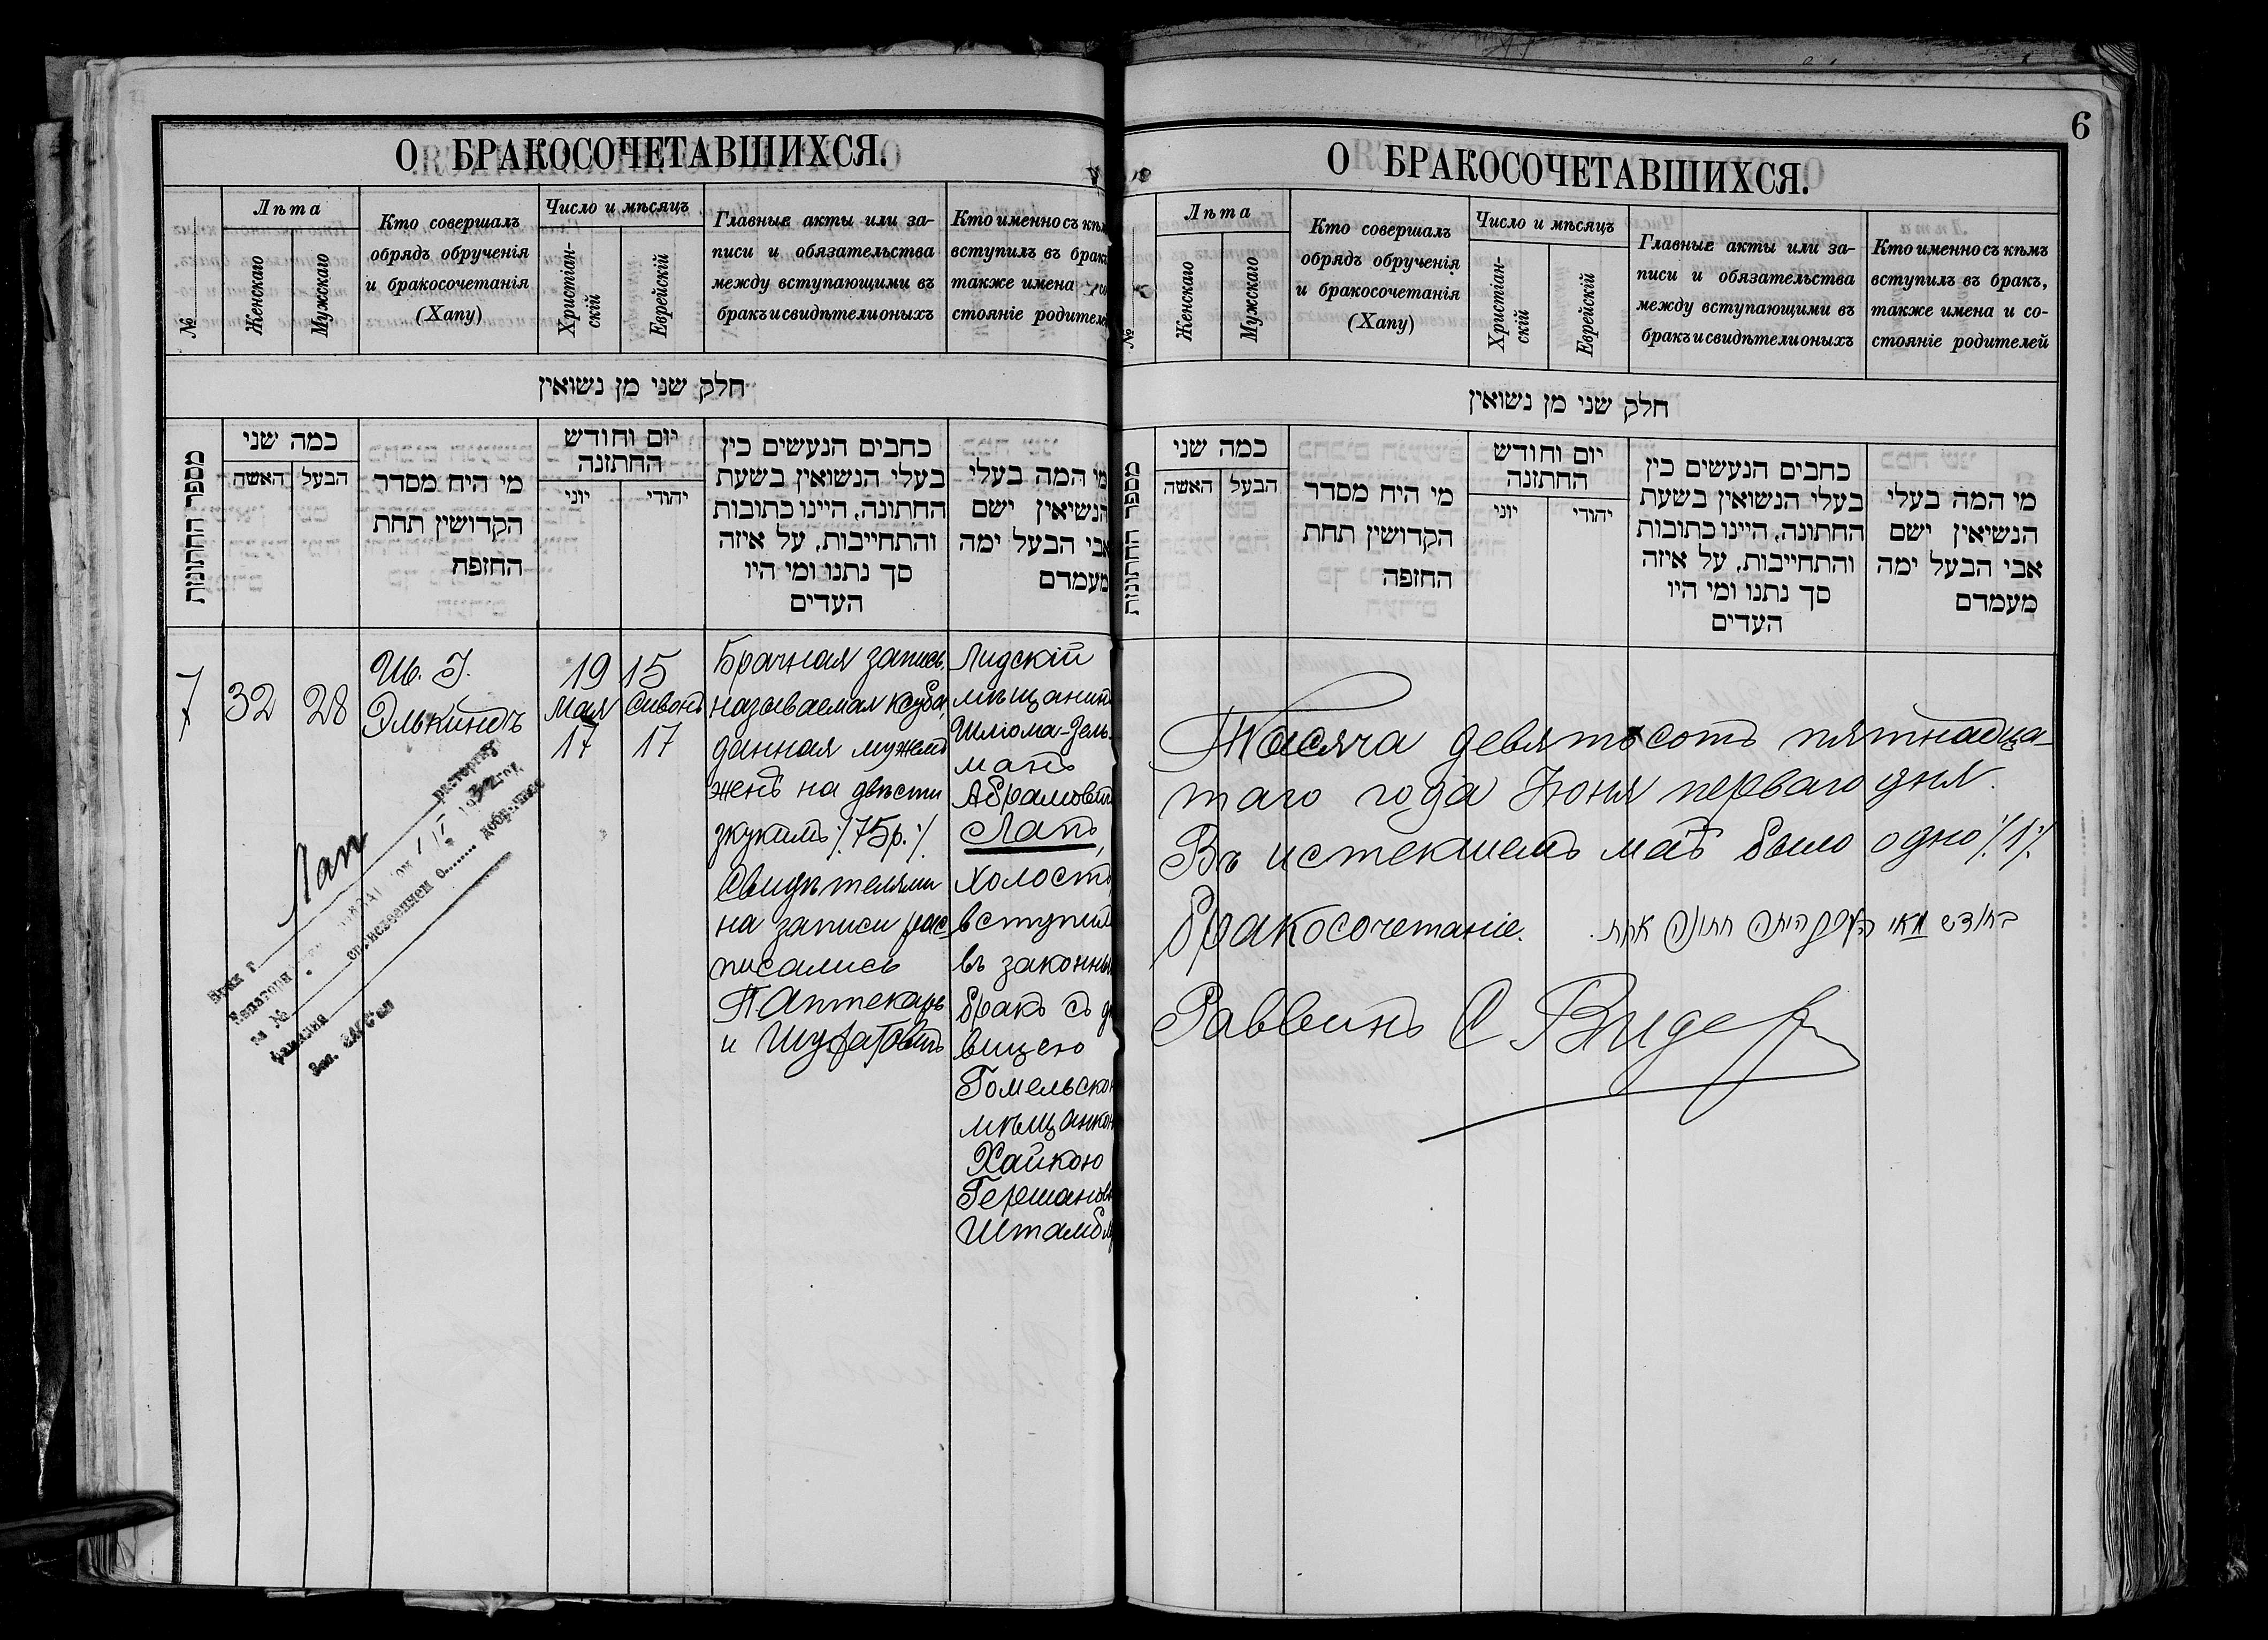 О БРАКОСОЧЕТАВШИХСЯ.
№
Лѣта
Женскаго
Мужскаго
Кто совершалъ
обрядъ обрученія
и бракосочетанія
(Хапу)
Число и мѣсяцъ
Христіан-
скій
Еврейскій
Главные акты или за-
писи и обязательства
между вступающими въ
бракъ и свидѣтели оныхъ
Кто именно съ кѣмъ
вступилъ въ бракъ
также имена
стояніе родителей
חלק שני מן נשואין
מספר החתונות
כמה שני
האשה
הבעל
מי היח מסדר
הקדושין תחת
החופה
יום וחודש
החתונה
יוני
יהודי
כתבים הנעשים בין
בעלי הנשואין בשעת
החתונה, היינו כתובות
והתחייבות, על איזה
סך נתנו ומי היו
העדים
מי המה בעלי
הנשיאין ישם
אבי הבעל ימה
מעמדם
7
32
28
Ш. I.
Элькиндъ
1915
Мая
17
Сивонъ
17
Брачная запись,
называемая ксуба,
данная мужемъ
женѣ на двѣсти
зкукимъ /.75р./.
Свидѣтелями
на записи рас-
писались
П Аптекарь
и
Лидскій
мѣщанинъ
Шліома-Зель-
манъ
Абрамовичъ
Лапъ,
холостъ,
вступилъ
въ законный
бракъ съ дѣ
вицею
Гомельскою
мѣщанкою
Хайкою
Гершанов
Штамбл
Лап
Брак г
расторгну
Евпатория
1932 год
за №
с присвоением
добрачное
фамилия
Зав. ЗАГС'ом
6
О БРАКОСОЧЕТАВШИХСЯ.
№
Лѣта
Женскаго
Мужскаго
Кто совершалъ
обрядъ обрученія
и бракосочетанія
(Хапу)
Число и мѣсяцъ
Христіан-
скій
Еврейскій
Главные акты или за-
писи и обязательства
между вступающими въ
бракъ и свидѣтели оныхъ
Кто именно съ кѣмъ
вступилъ въ бракъ,
также имена и со-
стояніе родителей
חלק שני מן נשואין
מספר החתונות
כמה שני
האשה
הבעל
מי היח מסדר
הקדושין תחת
החופה
יום וחודש
החתונה
יוני
יהודי
כתבים הנעשים בין
בעלי הנשואין בשעת
החתונה, היינו כתובות
והתחייבות, על איזה
סך נתנו ומי היו
העדים
מי המה בעלי
הנשיאין ישם
אבי הבעל ימה
מעמדם
Тысяча девятьсотъ пятнадца-
таго года Іюня перваго дня.
Въ истекшемъ маѣ было одно /.1/.
бракосочетаніе.
בחודש מאי העבר היתה חתונה אחת
Раввинъ С Видер